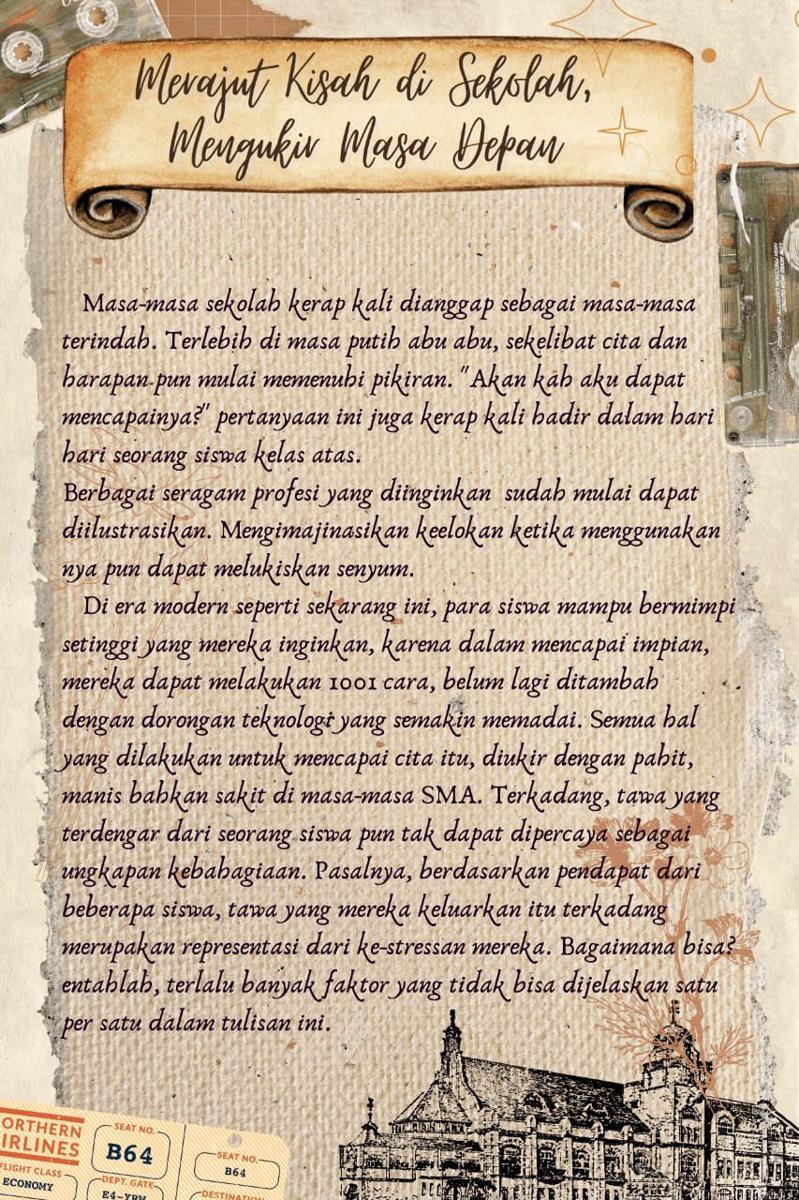 Merajut Kisah di Sekolah,
Mengukir Masa Depan
Masa-masa sekolah kerap kali dianggap sebagai masa-masa
terindah. Terlebih di masa putih abu abu, sekelibat cita dan
harapan pun mulai memenuhi pikiran. "Akan kah aku dapat
mencapainya?" pertanyaan ini juga kerap kali hadir dalam hari
hari seorang siswa kelas atas.
Berbagai seragam profesi yang diinginkan sudah mulai dapat
diilustrasikan. Mengimajinasikan keelokan ketika menggunakan
nya pun dapat melukiskan senyum.
Di era modern seperti sekarang ini, para siswa mampu bermimpi
setinggi yang mereka inginkan, karena dalam mencapai impian,
mereka dapat melakukan 1001 cara, belum lagi ditambah
dengan dorongan teknologi yang semakin memadai. Semua hal
yang dilakukan untuk mencapai cita itu, diukir dengan pahit,
manis bahkan sakit di masa-masa SMA. Terkadang, tawa yang
terdengar dari seorang siswa pun tak dapat dipercaya sebagai
ungkapan kebahagiaan. Pasalnya, berdasarkan pendapat dari
beberapa siswa, tawa yang mereka keluarkan itu terkadang
merupakan representasi dari ke-stressan mereka. Bagaimana bisa?
entahlah, terlalu banyak faktor yang tidak bisa dijelaskan satu
per satu dalam tulisan ini.
ORTHERN
IRLINES
SEAT NO.
B64
SEAT NO.
B64
FLIGHT CLASS
ECONOMY
DEPT. GATE
DESTINATION